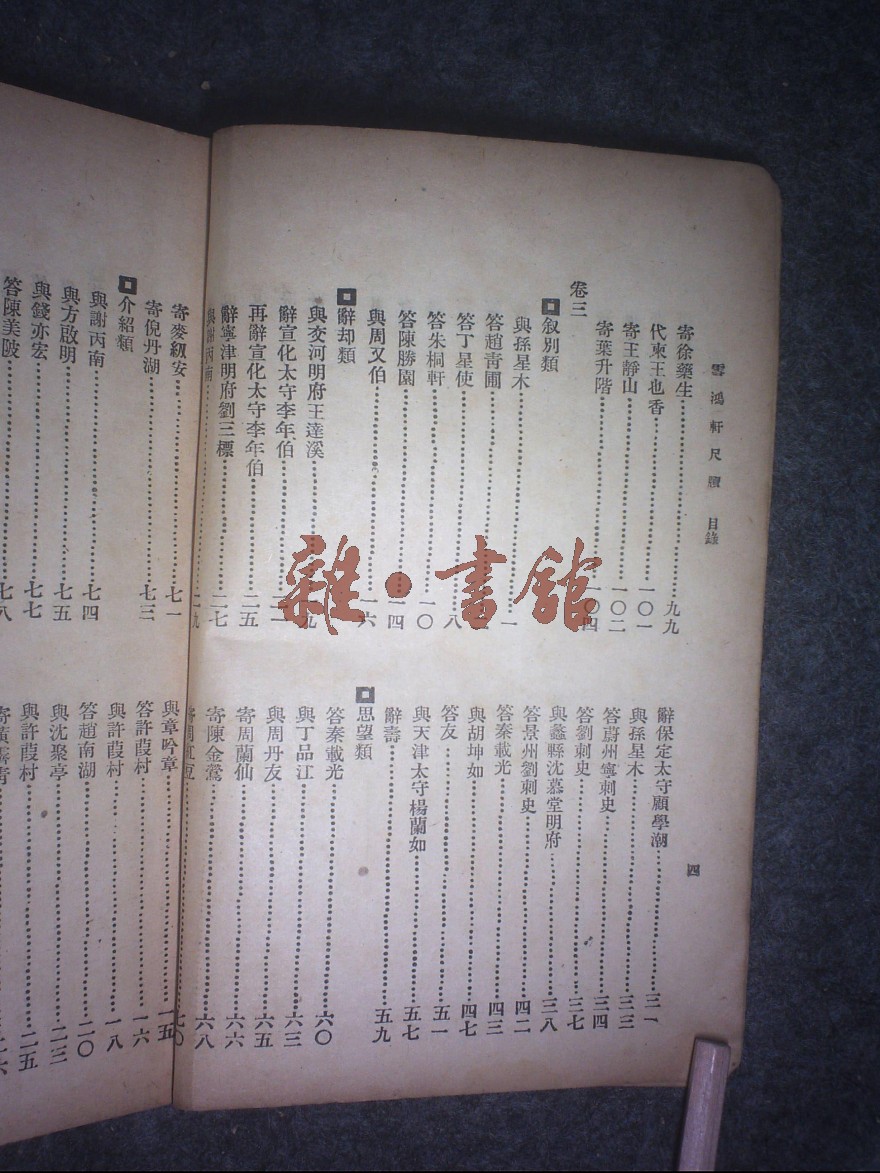 雪鴻軒尺牘 目錄
四
寄徐藥生 九九
代柬王也香 一〇一
寄王靜山 一〇二
寄葉升階 一〇四
卷三
叙別類
與孫星木 一
答趙青圃
答丁星使 八
答朱桐軒 一〇
答陳勝園 一四
與周又伯 一六
辭却類
與交河明府王達溪
辭宣化太守李年伯
再辭宣化太守李年伯 二五
辭寧津明府劉三標 二七
與謝丙南 二九
辭保定太守顧學潮 三一
與孫星木 三三
答蔚州寧刺史 三四
答劉刺史 三七
與蠡縣沈慕堂明府 三八
答景州劉刺史 四二
答秦載光 四三
與胡坤如 四七
答友 五一
與天津太守楊蘭如 五七
辭壽 五九
思望類
答秦載光 六〇
與丁品江 六三
與周丹友 六五
寄周蘭仙 六六
寄陳金鶯 六八
七〇
寄麥紉安 七一
寄倪丹湖 七三
介紹類
與謝丙南 七四
與方啟明 七五
與錢亦宏 七七
答陳美陂 七八
與章吟章 一五
答許葭村 一六
與許葭村 一八
答趙南湖 二〇
與沈聚亭 二三
與許葭村 二五
雜·書館